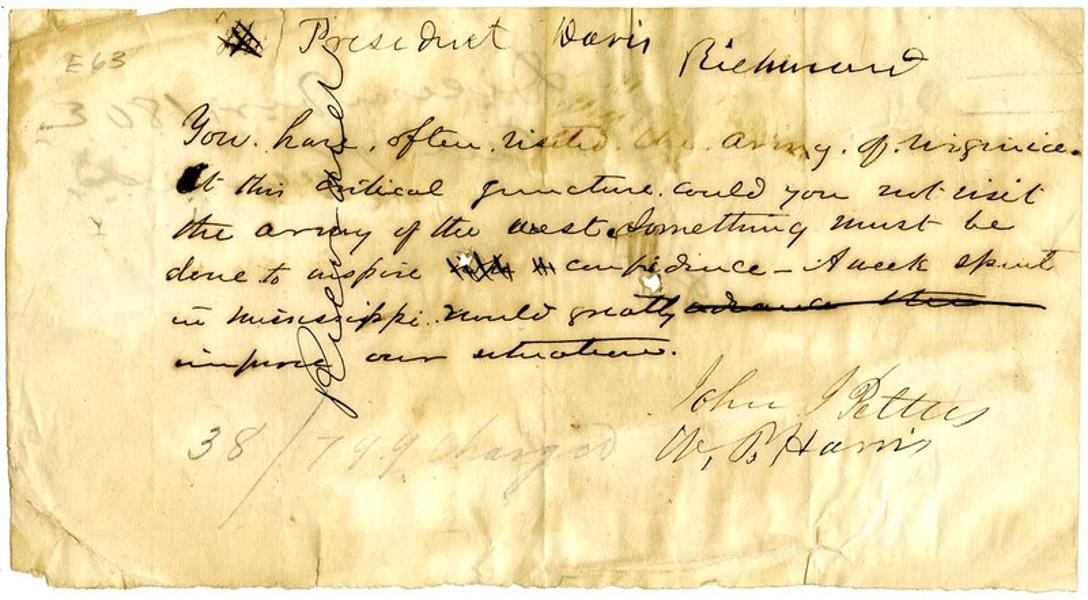 President Davis
Richmond
E63
You have often visited the army of Virginia.
At this critical juncture could you not visit
the army of the west. Something must be
done to inspire confidence – A week spent
in Mississippi would greatly advance the
improve our situation.
John J Pettus
W. P. Harris
38 / 799 charged